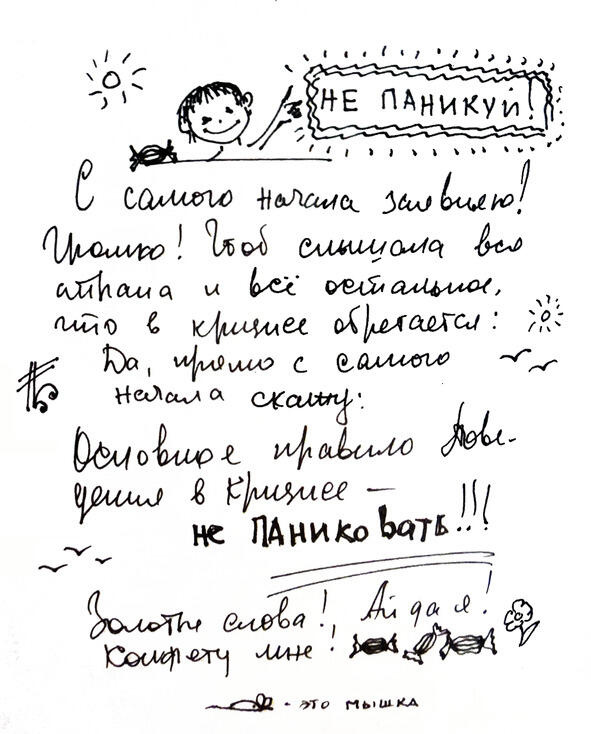 НЕ ПАНИКУЙ!
С самого начала заявляю!
Громко! Чтоб слышала вся
страна и всё остальное,
что в кризисе обретается:
Да, прямо с самого
начала скажу:
Основное правило пове-
дения в кризисе —
не ПАНИКоВАТЬ!!!
Золотые слова! Ай да я!
Конфету мне!
- это мышка